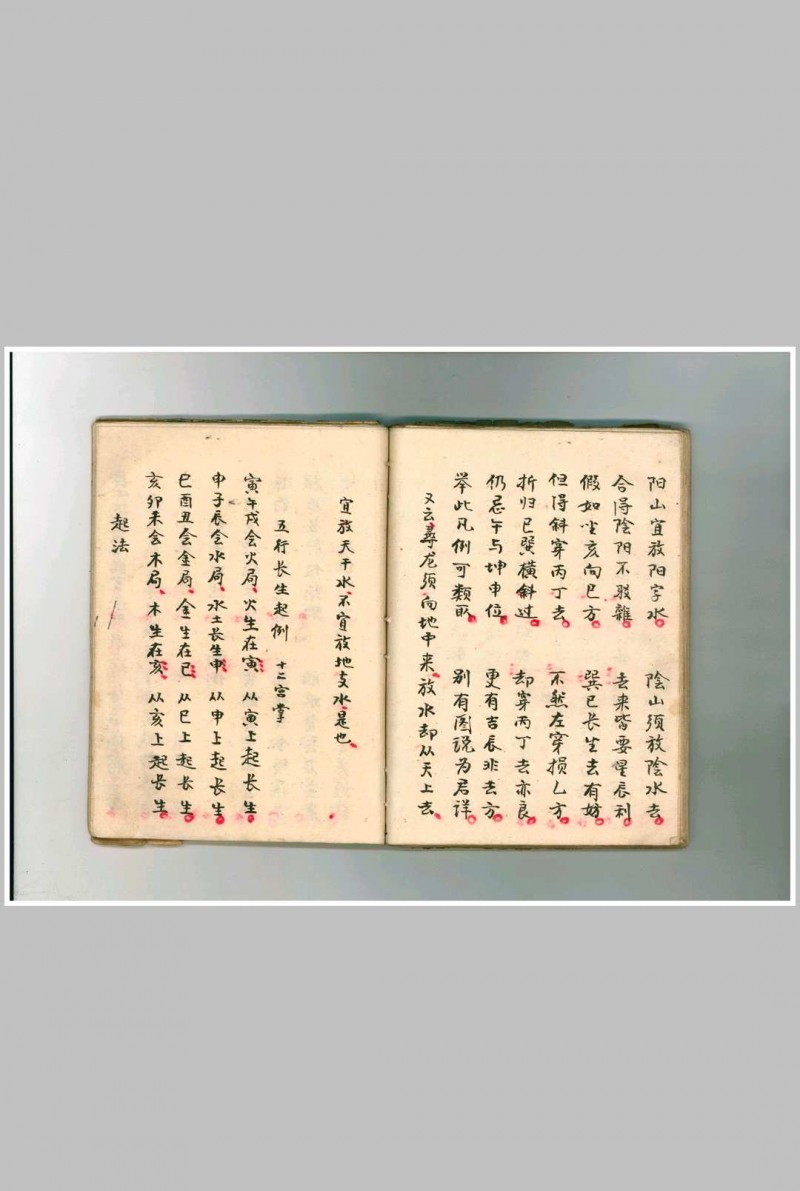 阳山宜放阳字水 陰山须放陰水去
合得陰阳不駁雜 去来皆要星辰利
假如坐亥向巳方 巽巳长生去有妨
但得斜穿丙丁去 不然左穿損乙方
折归巳巽横斜过 却穿丙丁去亦良
仍忌午与坤申位 更有吉辰非去方
举此凡例可類取 别有图説为君详
又云尋龙须向地中来 放水却从天上去
宜放天干水 不宜放地支水是也
五行长生起例 十二宫掌
寅午戌会火局 火生在寅 从寅上起长生
申子辰会水局 水土长生申 从申上起长生
巳酉丑会金局 金生在巳 从巳上起长生
亥卯未会木局 木生在亥 从亥上起长生
起法